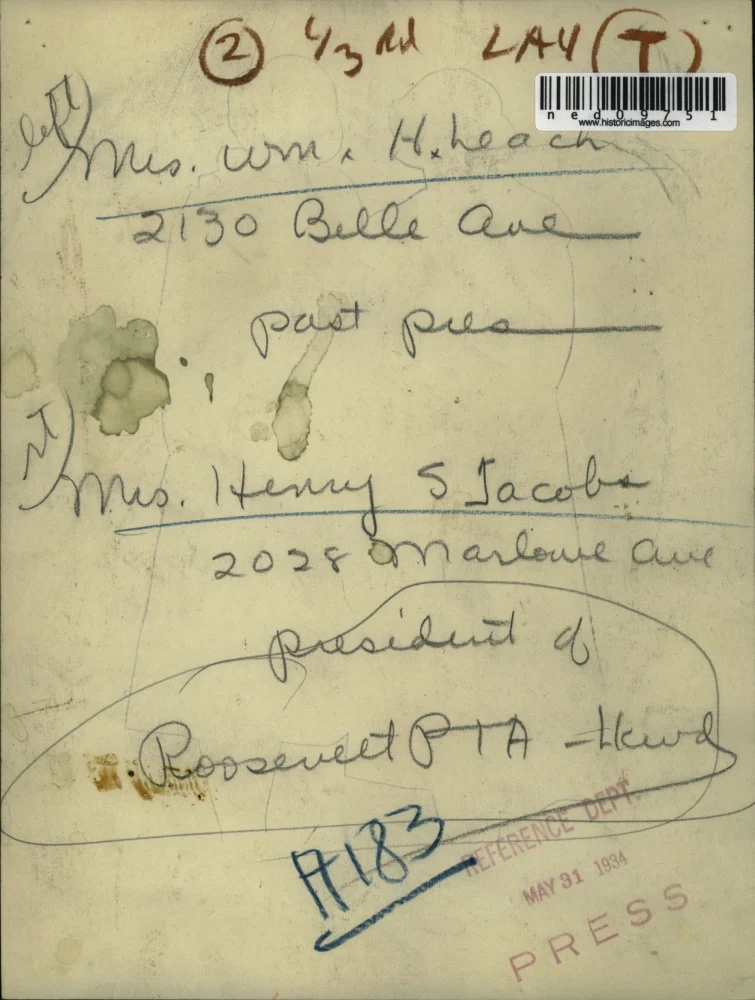 2 1/3 rd LAY (T)
ned09751
www.historicimages.com
left)
Mrs. Wm. H. Leach
2130 Belle Ave
past pres
rt)
Mrs. Henry S Jacobs
2028 Marlowe Ave
president of
Roosevelt PTA - Lkwd
A183
REFERENCE DEPT.
MAY 31 1934
PRESS